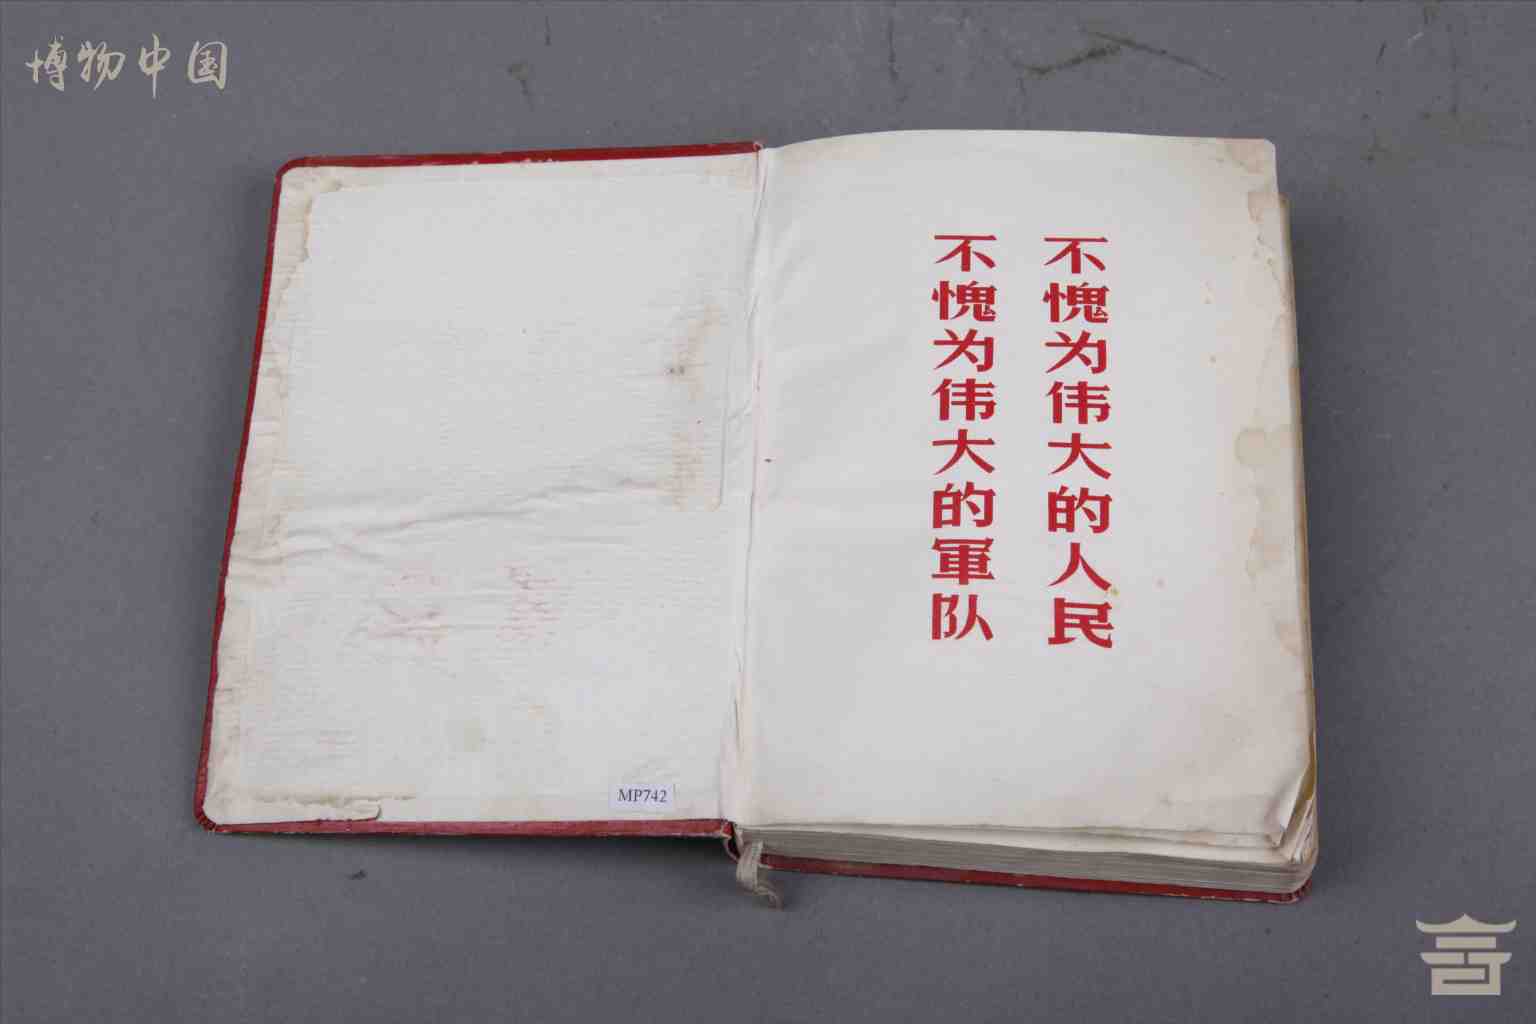 博物中国
不愧为伟大的人民
不愧为伟大的軍队
MP742